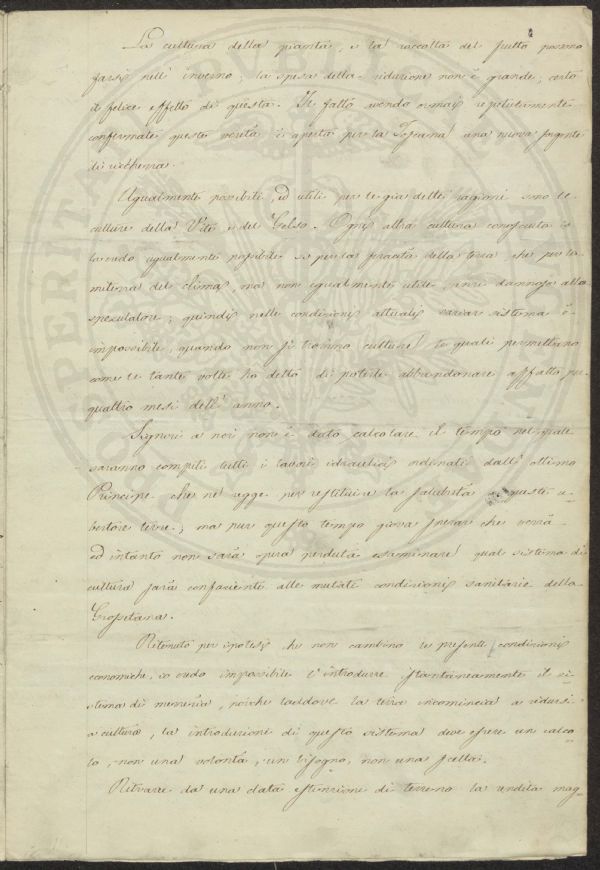 La cultura della pianta, e la raccolta del frutto possono
farsi nell' inverno; la spesa della riduzione non è grande, certo
il felice effetto di questa. Il fatto avendo ormai repetutamente
confermate queste verità è aperta per la Toscana una nuova sorgente
di ricchezza.
Ugualmente possibili, ed utili per le già dette ragioni sono le
culture della Vite e del Gelso. Ogni altra cultura conosciuta io
la credo ugualmente possibile sì per la feracità della terra che per la
mitezza del clima, ma non egualmente utile, anzi dannosa allo
speculatore; quindi nelle condizioni attuali variar sistema è
impossibile, quando non si trovino culture le quali permettano
come le tante volte ho detto di poterle abbandonare affatto per
quattro mesi dell' anno.
Signori a noi non è dato calcolare il tempo nel quale
saranno compiti tutti i lavori idraulici ordinati dall' ottimo
Principe che ne regge per restituire la salubrità a queste u-
bertose terre; ma pur questo tempo giova sperar che verrà
ed intanto non sarà opera perduta esaminare qual sistema di
cultura sarà confaciente alle mutate condizioni sanitarie della
Grossetana.
Ritenuto per ipotesi che non cambino le presenti condizioni
economiche, io credo impossibile l' introdurre istantaneamente il si-
stema di mezzeria, poiche laddove la terra incomincia a ridursi
a cultura, la introduzione di questo sistema deve essere un calco-
lo, non una volontà, un bisogno, non una scelta.
Ritrarre da una data estenzione di terreno la rendita mag-
PROSPERITATI PUBLICAE